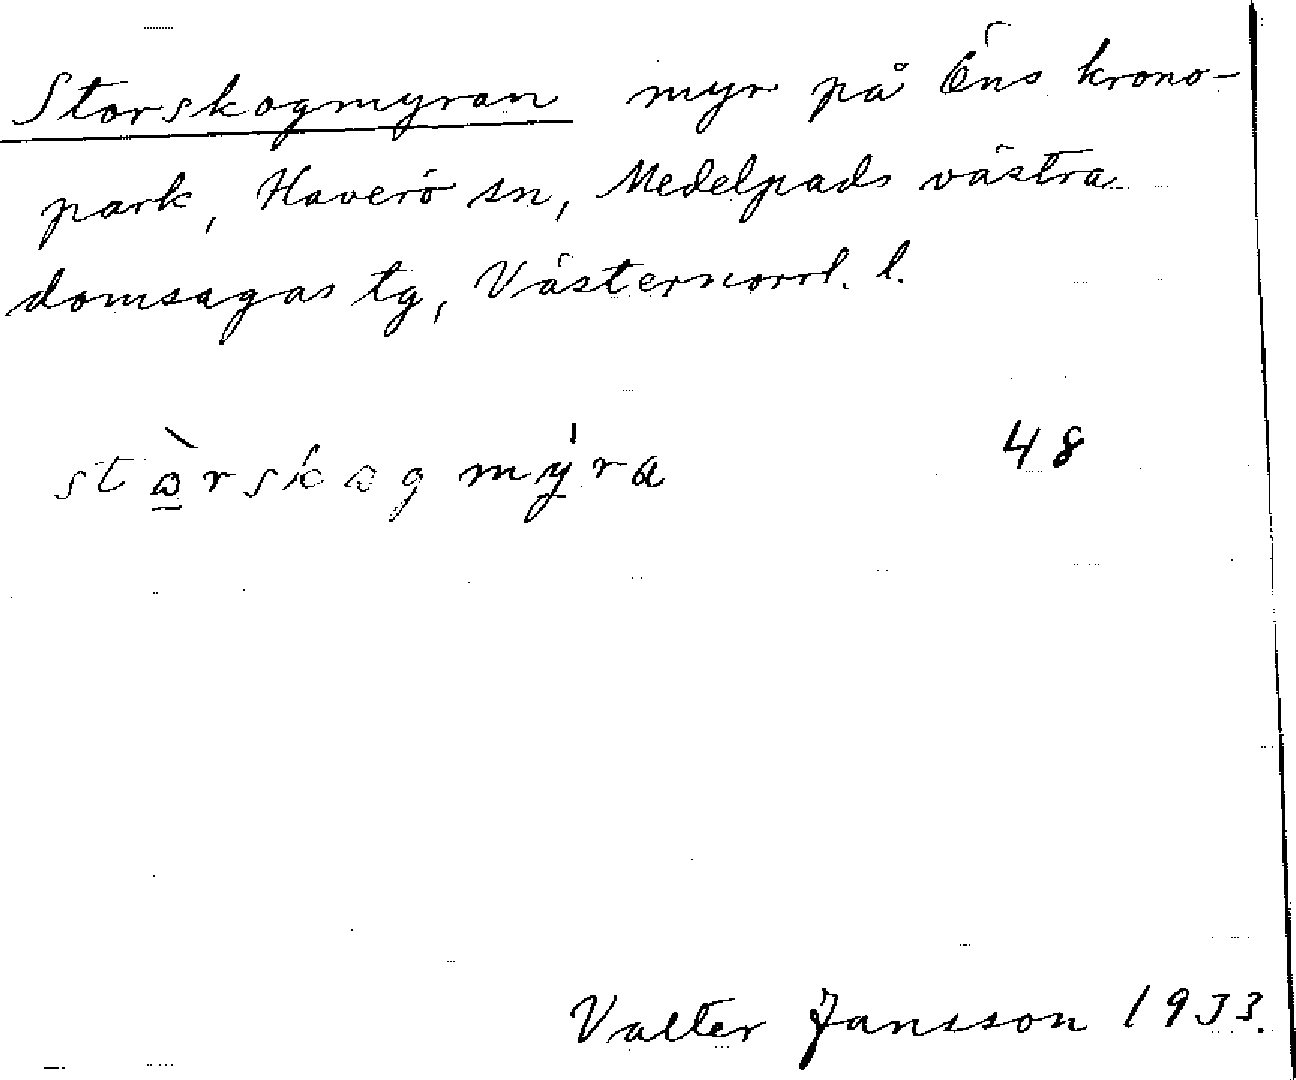 Storskogmyran myr på Öns krono-
park, Haverö sn, Medelpads västra
domsagas tg, Västernorrl. l.
stɷ̀rskɷgmýra 48
Valter Jansson 1933.